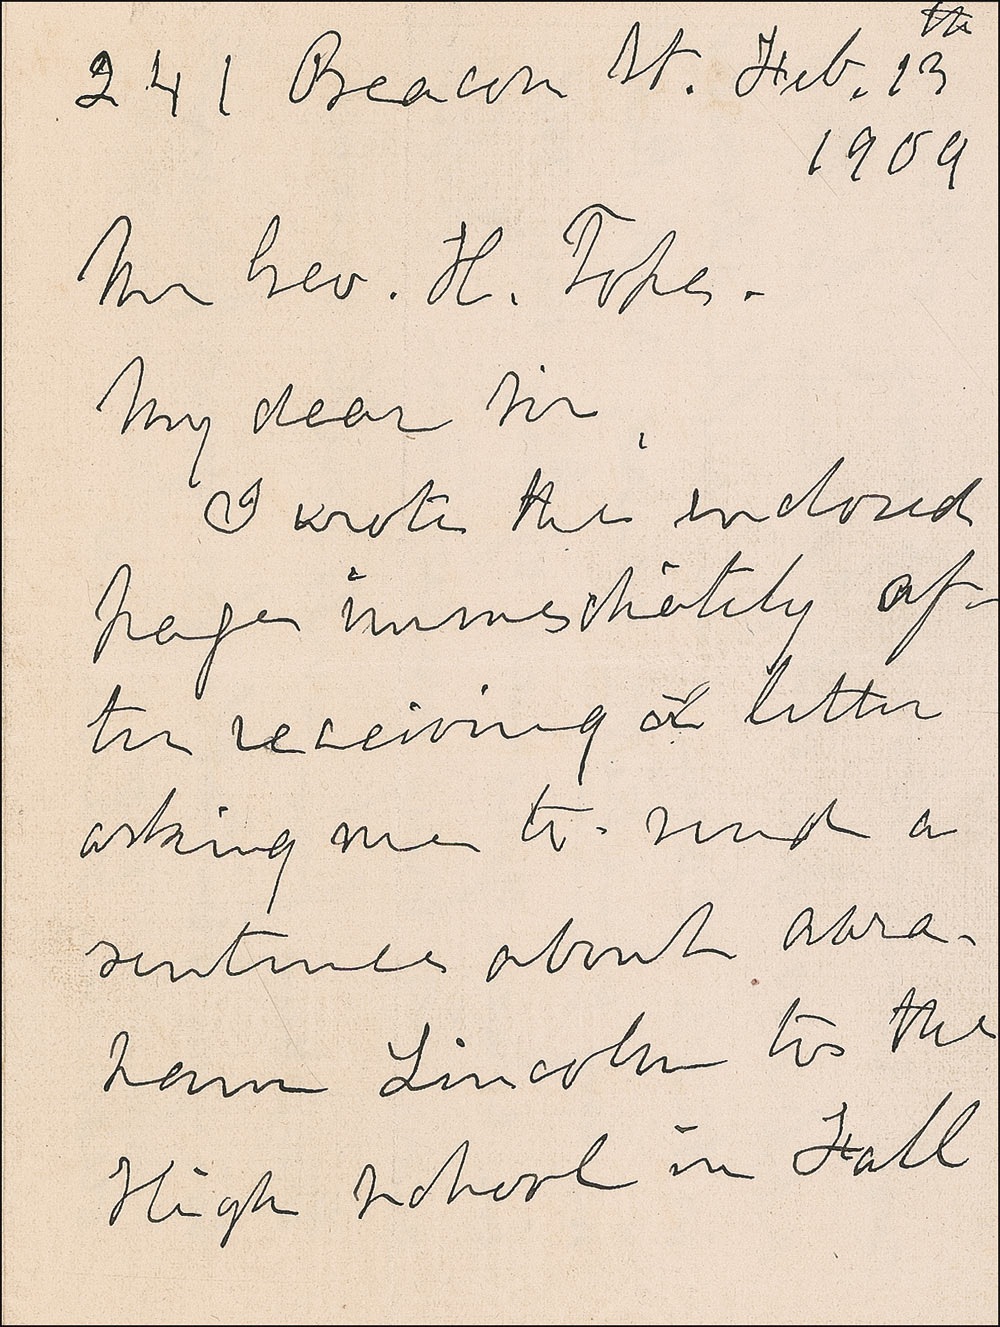 241 Beacon St. Feb. 13th
1909
Mr Geo. H. Tope.
My dear Sir,
I wrote the enclosed
page immediately af-
ter receiving a letter
asking me to send a
sentence about Abra-
ham Lincoln to the
High School in Fall